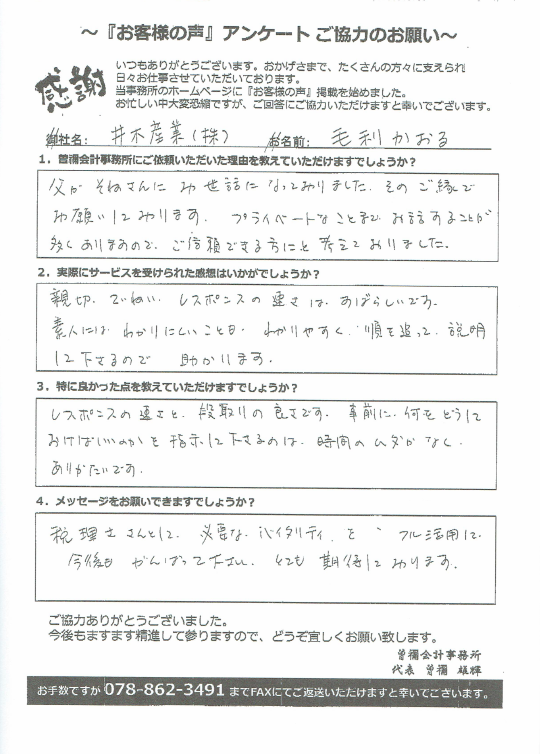 ～『お客様の声』アンケート ご協力のお願い～
感謝
いつもありがとうございます。おかげさまで、たくさんの方々に支えられ
日々お仕事させていただいております。
当事務所のホームページに『お客様の声』掲載を始めました。
お忙しい中大変恐縮ですが、ご回答にご協力いただけますと幸いでございます。
御社名： 井木産業(株) お名前： 毛利かおる
1．曽彌会計事務所にご依頼いただいた理由を教えていただけますでしょうか？
父が そねさんに お世話に なっておりました。そのご縁で
お願いしております。 プライベートなことまで お話することが
多くありますので、ご信頼できる方にと 考えておりました。
2．実際にサービスを受けられた感想はいかがでしょうか？
親切、ていねい、レスポンスの速さは、すばらしいです。
素人には わかりにくいことも わかりやすく、順を追って、説明
して下さるので 助かります。
3．特に良かった点を教えていただけますでしょうか？
レスポンスの速さと、段取りの良さです。 事前に、何をどうして
おけばいいのかを 指示して下さるのは、時間のムダがなく、
ありがたいです。
4．メッセージをお願いできますでしょうか？
税理士さんとして、必要な バイタリティ を フル活用して
今後も がんばって下さい。とても 期待しております。
ご協力ありがとうございました。
今後もますます精進して参りますので、どうぞ宜しくお願い致します。
曽彌会計事務所
代表 曽彌
お手数ですが 078-862-3491 までFAXにてご返送いただけますと幸いでございます。